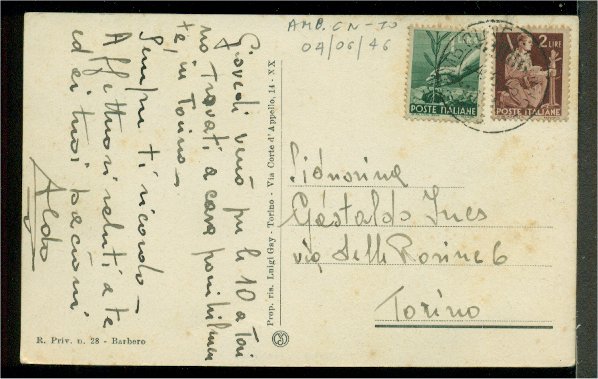 AMB. CN-TO
04/06/46
2 LIRE
POSTE ITALIANE
POSTE ITALIANE
Giovedì verrò per le 10 a Tori
no trovati a casa possibilmen
te, in Torino -
Sempre ti ricordo -
Affettuosi saluti a te
ed ai tuoi bacioni
Aldo
Prop. ris. Luigi Gay - Torino - Via Corte d'Appello, 14 - XX
Signorina
Gastaldo Ines
via delle Rosine 6
Torino
R. Priv. n. 28 - Barbero